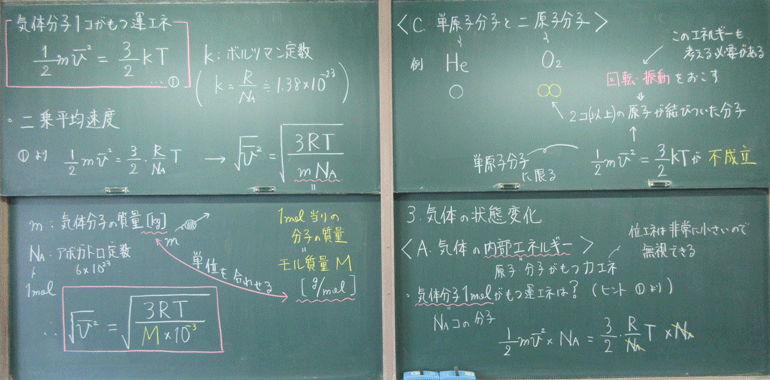 気体分子1コがもつ運エネ
1/2 mv̄² = 3/2 kT …①
k:ボルツマン定数
(k = R/NA ≒ 1.38×10⁻²³)
・二乗平均速度
①より 1/2 mv̄² = 3/2・R/NA T → √v̄² = √(3RT/mNA)
m:気体分子の質量[kg]
m
NA:アボガドロ定数
6×10²³
1mol
単位を合わせる
1mol当りの
分子の質量
=
モル質量M
[g/mol]
∴ √v̄² = √(3RT/M×10⁻³)
<C 単原子分子と二原子分子>
例 He O₂
このエネルギーも
考える必要がある
回転・振動をおこす
2コ(以上)の原子が結びついた分子
単原子分子
に限る
1/2 mv̄² = 3/2 kTが不成立
3.気体の状態変化
<A.気体の内部エネルギー>
原子分子がもつ力エネ
位エネは非常に小さいので
無視できる
・気体分子1molがもつ運エネは?(ヒント①より)
NAコの分子
1/2 mv̄² × NA = 3/2・R/NA T × NA